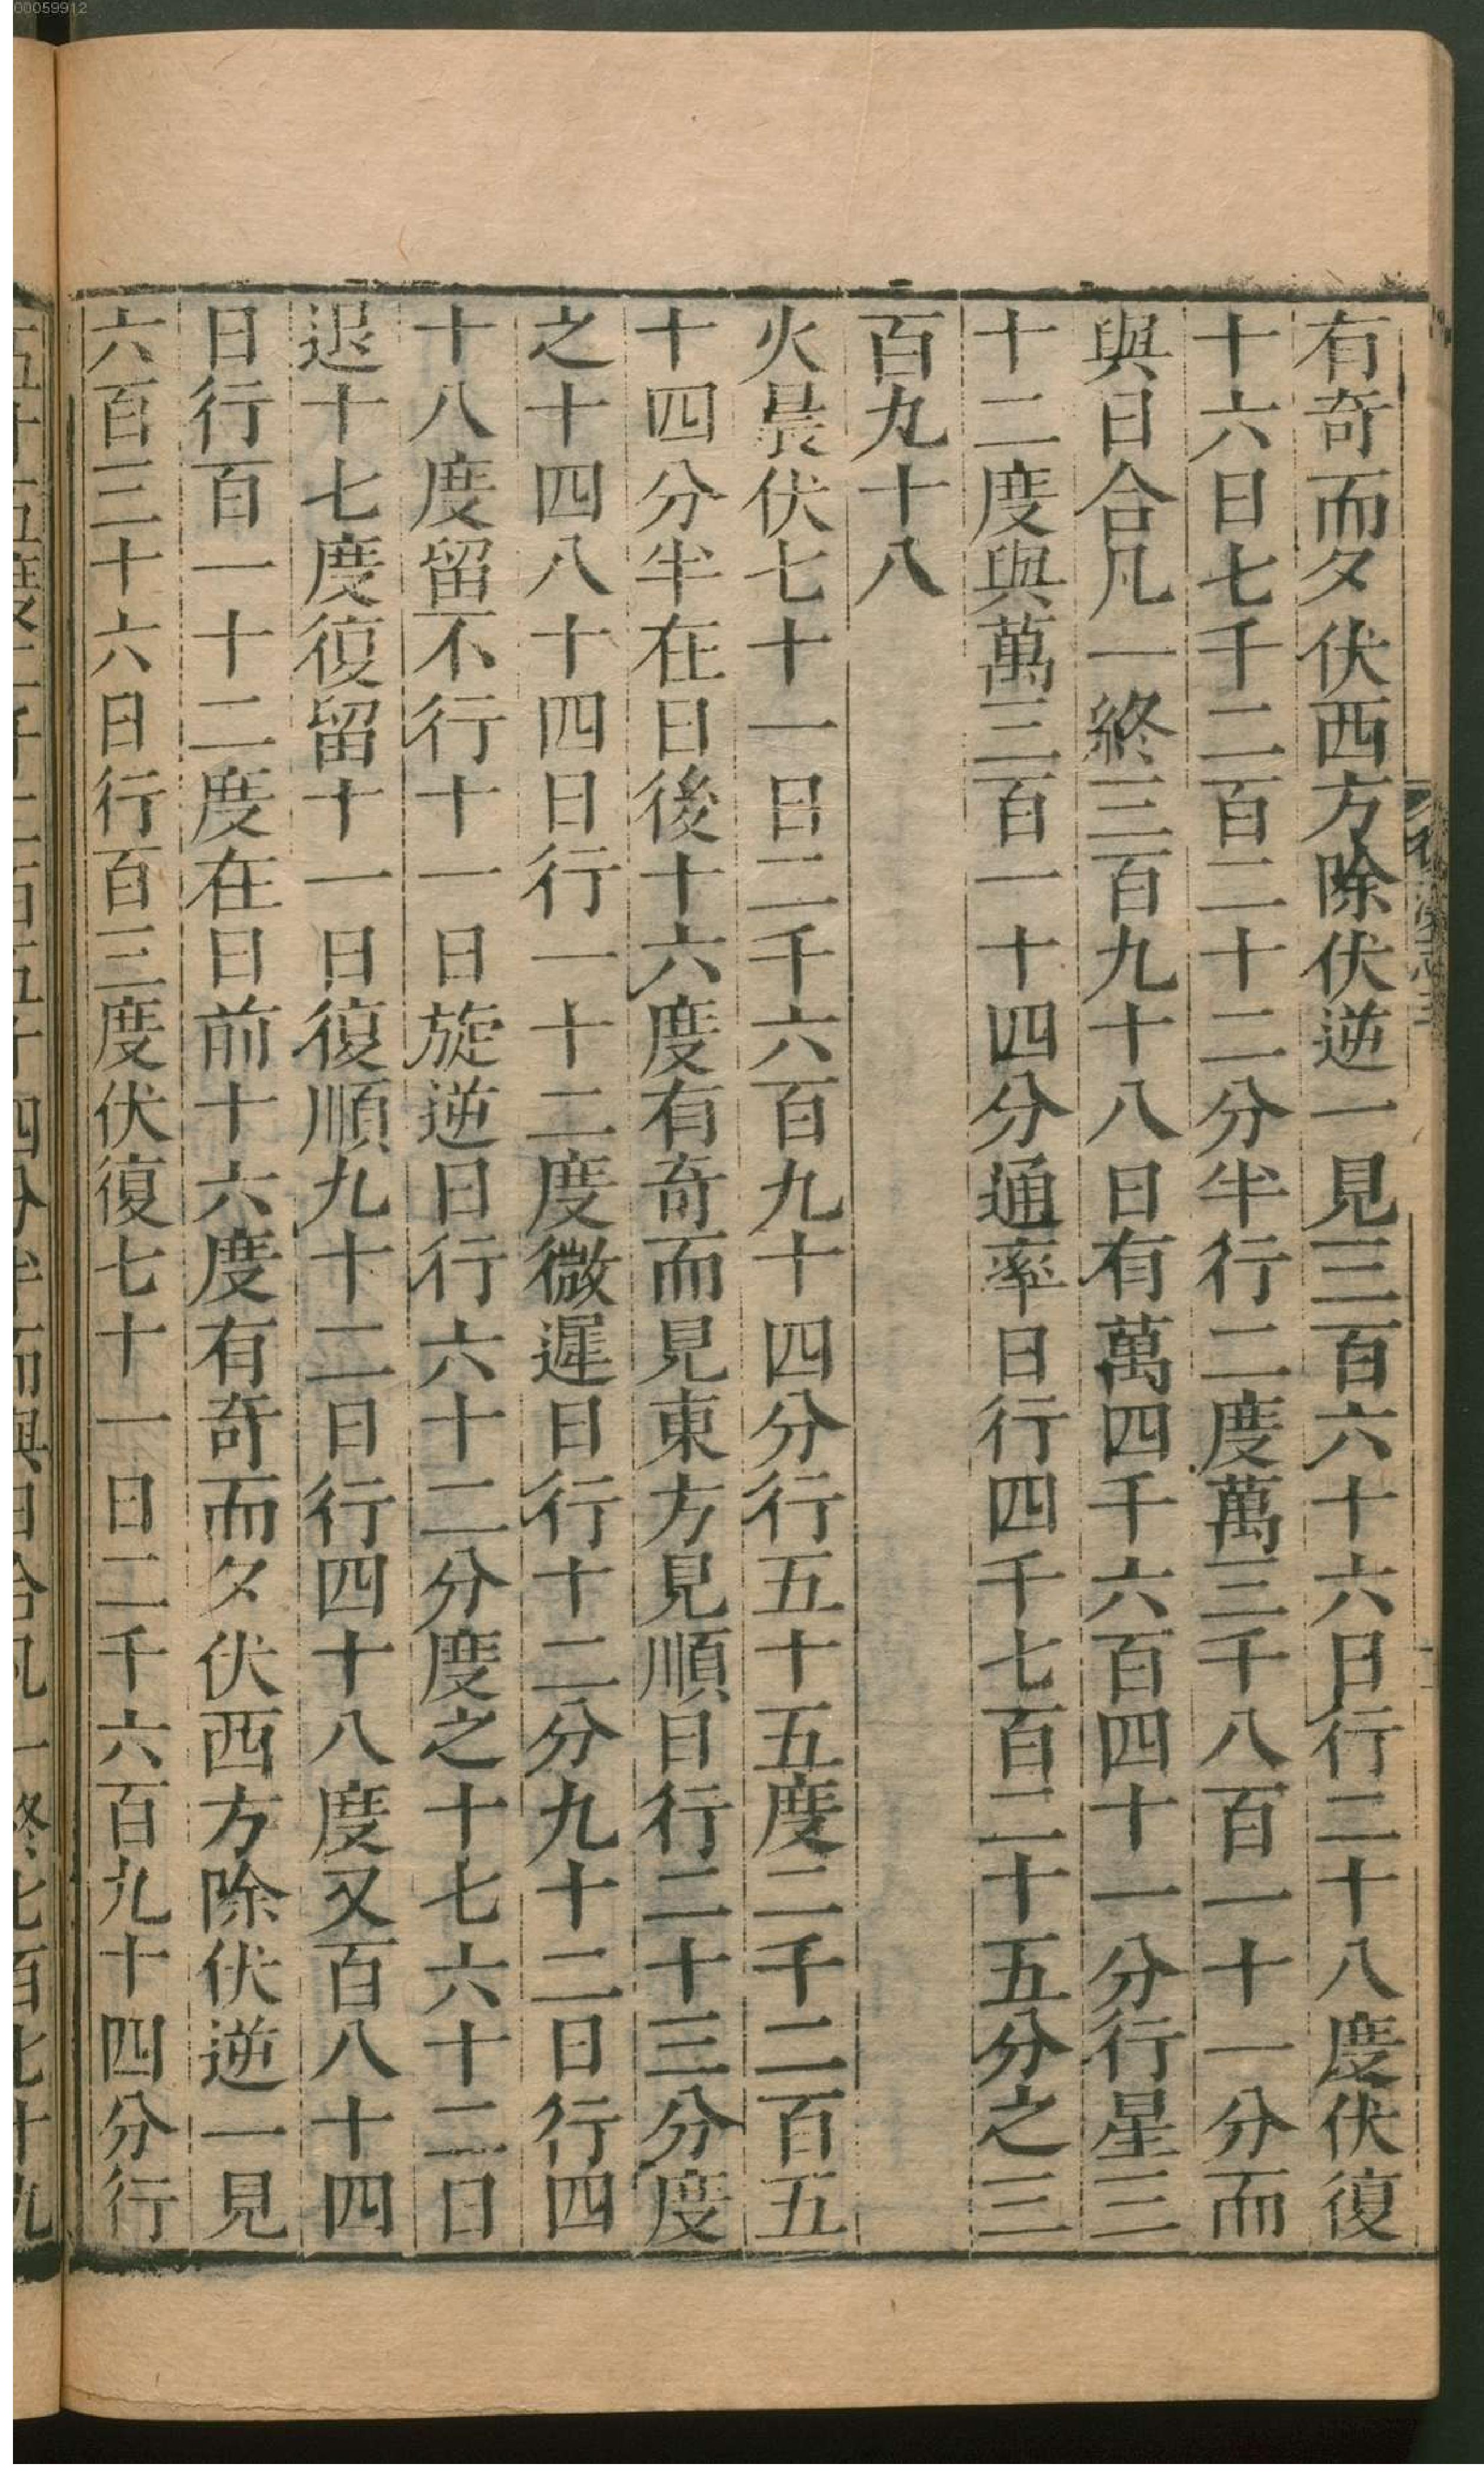 00059912
有奇而夕伏西方除伏逆一見三百六十六日行二十八度伏復
十六日七千二百二十二分半行二度萬三千八百一十一分而
與日合凡一終三百九十八日有萬四千六百四十一分行星三
十二度與萬三百一十四分通率日行四千七百二十五分之三
百九十八
火晨伏七十一日二千六百九十四分行五十五度二千二百五
十四分半在日後十六度有奇而見東方見順日行二十三分度
之十四八十四日行一十二度微遲日行十二分九十二日行四
十八度留不行十一日旋逆日行六十二分度之十七六十二日
退十七度復留十一日復順九十二日行四十八度又百八十四
日行百一十二度在日前十六度有奇而夕伏西方除伏逆一見
六百三十六日行百三度伏復七十一日二千六百九十四分行